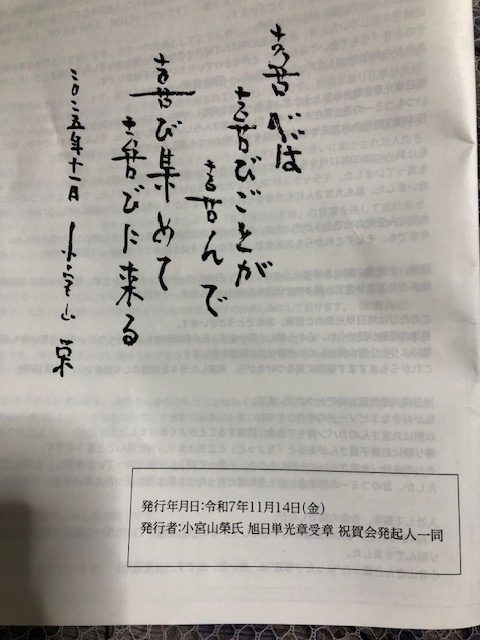 喜べば
喜びごとが
喜んで
喜び集めて
喜びに来る
二〇二五年十一月 小宮山 栄
発行年月日:令和7年11月14日(金)
発行者:小宮山榮氏 旭日単光章受章 祝賀会発起人一同